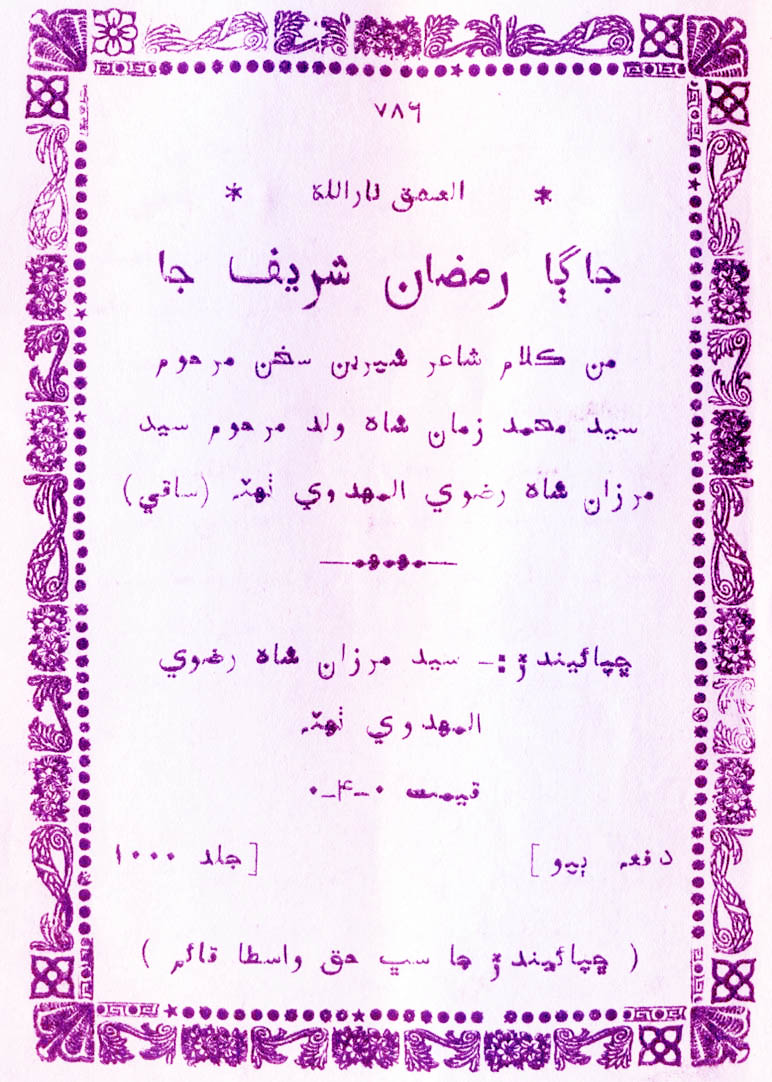 ۷۸۶
* العشق نارالله *
جاڳا رمضان شريف جا
من ڪلام شاعر شيرين سخن مرحوم
سيد محمد زمان شاه ولد مرحوم سيد
مرزان شاه رضوي المهدوي ٺهٽه (ساقي)
ڇپائيندڙ :ـ سيد مرزان شاه رضوي
المهدوي ٺهٽه
قيمت ۰ـ۴ـ۰
دفعه ٻيو] [جلد ۱۰۰۰
( ڇپائيندڙ جا سڀ حق واسطا قائم )